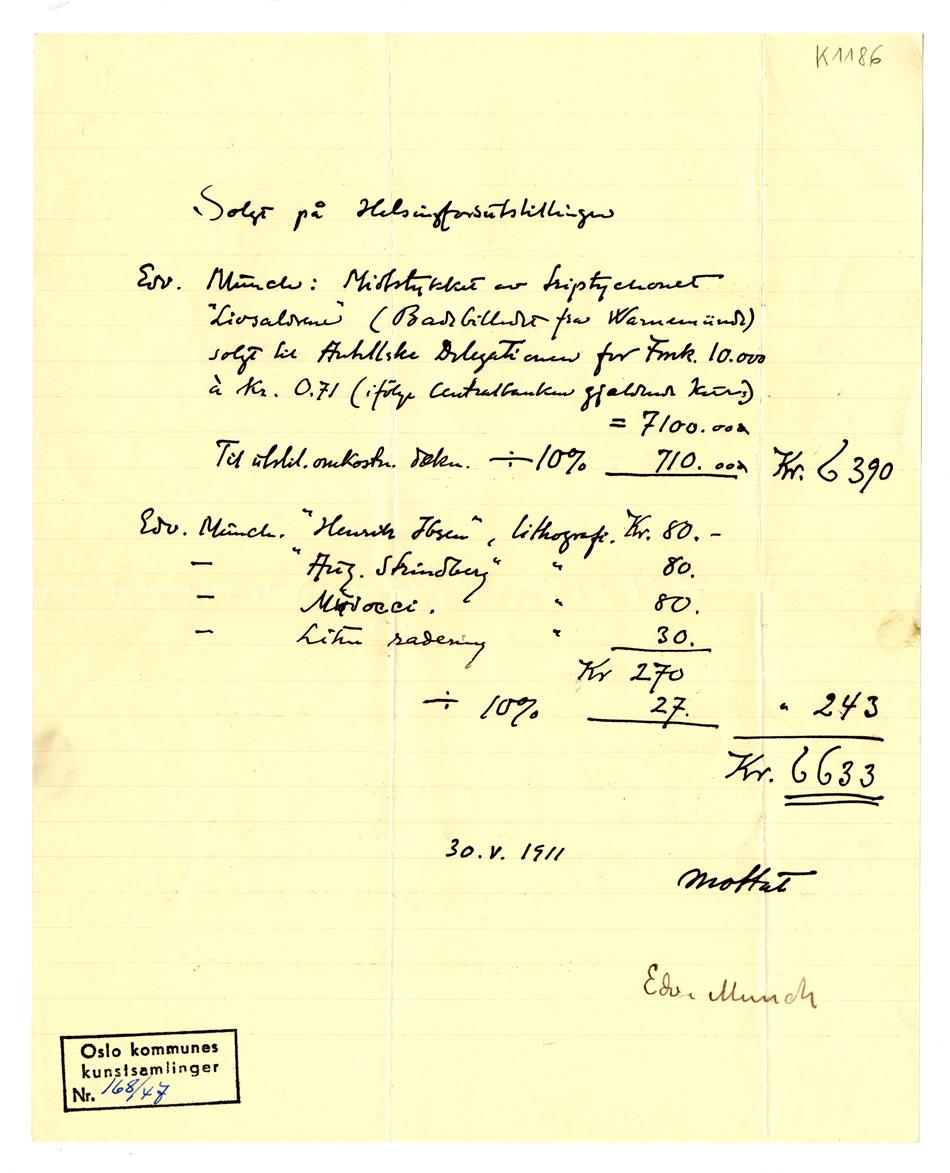 K1186
Solgt på Helsingforsutstillingen
Edv. Münch: Midtstykket av triptychonet
"Livsaldrene" (Badebilledet fra Warnemünde)
solgt til Antellske Delegationen for Fmk. 10.000
à Kr. 0.71 (ifölge Centralbanken gjeldende Kurs)
= 7100.000
Til utstil. omkostn. dekn. ÷ 10% 710.000 Kr. 6390
Edv. Münch. "Henrik Ibsen", lithografi. Kr. 80.-
— "Aug. Strindberg" " 80.
— . " 80.
— Liten radering " 30.
Kr 270
÷ 10% 27. " 243
Kr. 6633
30.V. 1911
Mottat
Edv. Munch
Oslo kommunes
kunstsamlinger
Nr. 168/47